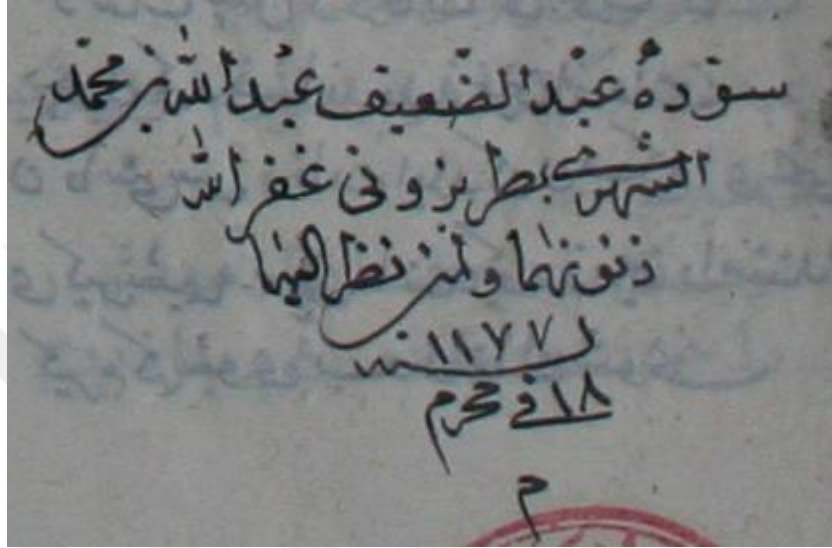 سوّدهُ عبْد الضّعيف عبْد الله بن محمّد
الشهير بطربزونى غفر الله
ذنوبهما ولمن نظر اليهما
سنه ١١٧٧
١٨ فى محرم
م